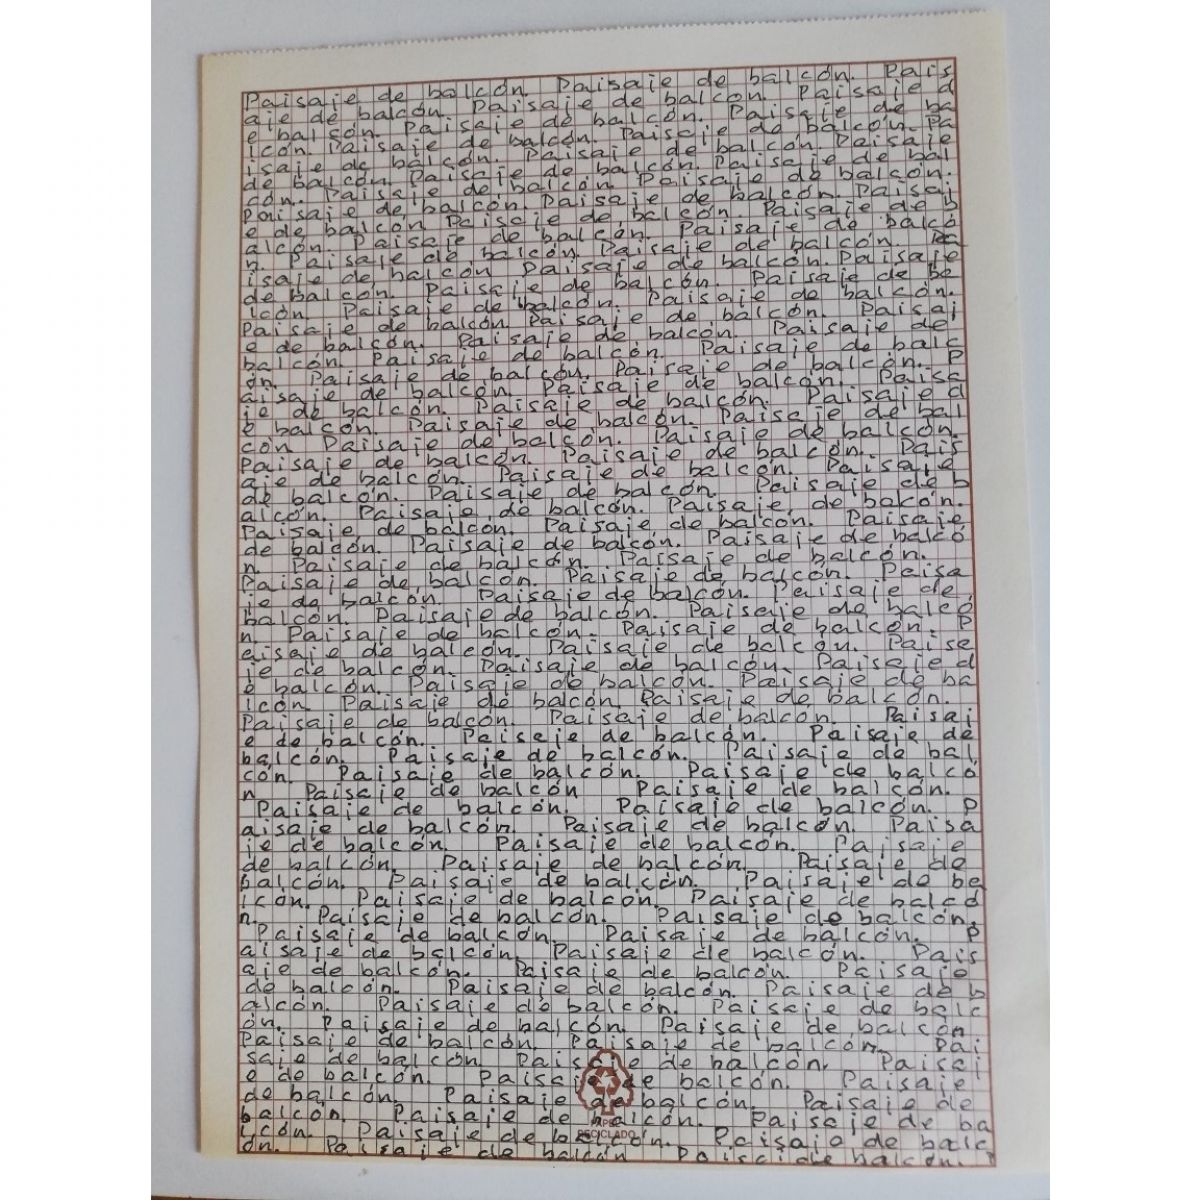 Paisaje de balcón. Paisaje de balcón. Pais
aje de balcón. Paisaje de balcón. Paisaje d
e balcón. Paisaje de balcón. Paisaje de ba
lcón. Paisaje de balcón. Paisaje de balcón. Pa
isaje de balcón. Paisaje de balcón. Paisaje
de balcón. Paisaje de balcón. Paisaje de bal
cón. Paisaje de balcón. Paisaje de balcón.
Paisaje de balcón. Paisaje de balcón. Paisaj
e de balcón. Paisaje de balcón. Paisaje de b
alcón. Paisaje de balcón. Paisaje de balcó
n. Paisaje de balcón. Paisaje de balcón. Pa
isaje de balcón. Paisaje de balcón. Paisaje
de balcón. Paisaje de balcón. Paisaje de ba
lcón. Paisaje de balcón. Paisaje de balcón.
Paisaje de balcón. Paisaje de balcón. Paisaj
e de balcón. Paisaje de balcón. Paisaje de
balcón. Paisaje de balcón. Paisaje de balc
ón. Paisaje de balcón. Paisaje de balcón. P
aisaje de balcón. Paisaje de balcón. Paisa
je de balcón. Paisaje de balcón. Paisaje d
e balcón. Paisaje de balcón. Paisaje de bal
cón. Paisaje de balcón. Paisaje de balcón.
Paisaje de balcón. Paisaje de balcón. Pais
aje de balcón. Paisaje de balcón. Paisaje
de balcón. Paisaje de balcón. Paisaje de b
alcón. Paisaje de balcón. Paisaje de balcón.
Paisaje de balcón. Paisaje de balcón. Paisaje
de balcón. Paisaje de balcón. Paisaje de balcó
n. Paisaje de balcón. Paisaje de balcón.
Paisaje de balcón. Paisaje de balcón. Paisa
je de balcón. Paisaje de balcón. Paisaje de
balcón. Paisaje de balcón. Paisaje de balcó
n. Paisaje de balcón. Paisaje de balcón. P
aisaje de balcón. Paisaje de balcón. Paisa
je de balcón. Paisaje de balcón. Paisaje d
e balcón. Paisaje de balcón. Paisaje de ba
lcón. Paisaje de balcón. Paisaje de balcón.
Paisaje de balcón. Paisaje de balcón. Paisaj
e de balcón. Paisaje de balcón. Paisaje de
balcón. Paisaje de balcón. Paisaje de bal
cón. Paisaje de balcón. Paisaje de balcó
n. Paisaje de balcón Paisaje de balcón.
Paisaje de balcón. Paisaje de balcón. P
aisaje de balcón. Paisaje de balcón. Paisa
je de balcón. Paisaje de balcón. Paisaje
de balcón. Paisaje de balcón. Paisaje de
balcón. Paisaje de balcón. Paisaje de ba
lcón. Paisaje de balcón. Paisaje de balcó
n. Paisaje de balcón. Paisaje de balcón.
Paisaje de balcón. Paisaje de balcón. P
aisaje de balcón. Paisaje de balcón. Pais
aje de balcón. Paisaje de balcón. Paisaje
de balcón. Paisaje de balcón. Paisaje de b
alcón. Paisaje de balcón. Paisaje de balc
ón. Paisaje de balcón. Paisaje de balcón
Paisaje de balcón. Paisaje de balcón. Pai
saje de balcón. Paisaje de balcón. Paisaj
e de balcón. Paisaje de balcón. Paisaje
de balcón. Paisaje de balcón. Paisaje de
balcón. Paisaje de balcón. Paisaje de ba
lcón. Paisaje de balcón. Paisaje de balc
ón. Paisaje de balcón Paisaje de balcón.
RECICLADO